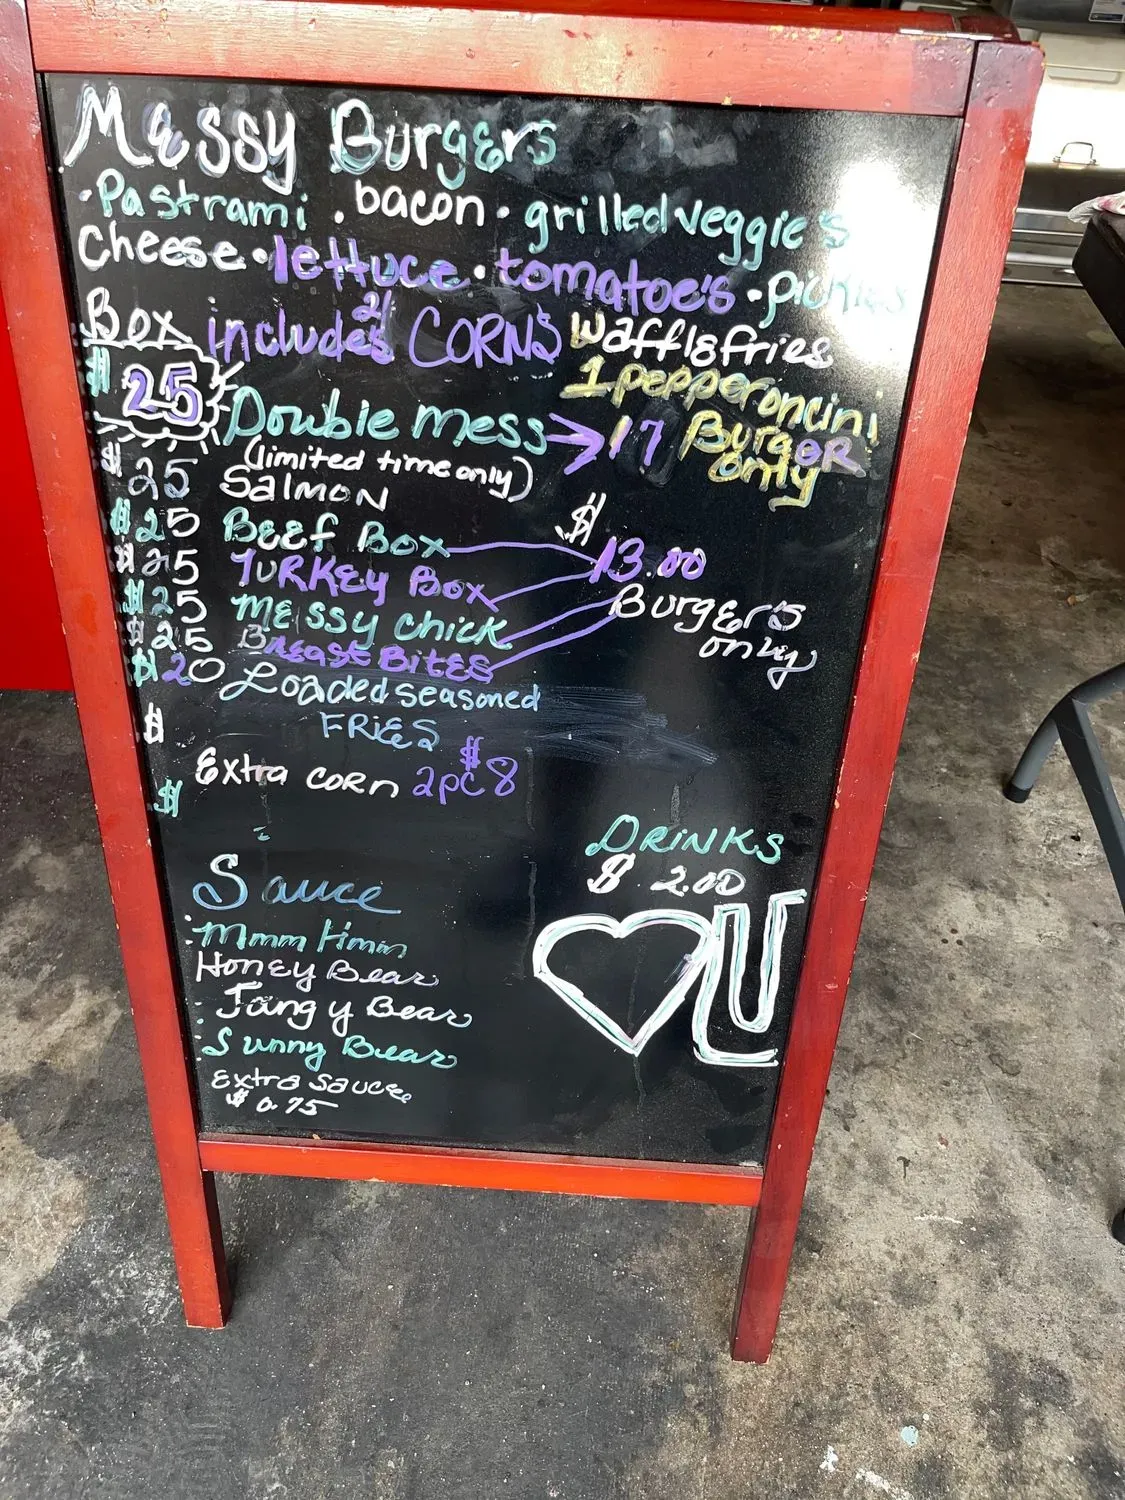 Messy Burgers
• Pastrami . bacon • grilled veggie's
Cheese • lettuce • tomatoe's • pickles
Box includes 2 CORNS waffle fries
1 pepperoncini
$ 25 Double mess > 17 Burger only
(limited time only)
$ 25 Salmon
$ 25 Beef Box $ 13.00
$ 25 Turkey Box Burger's only
$ 25 Messy Chick
$ 25 Breast Bites
$ 20 Loaded seasoned
FRIES
$
Extra corn 2pc $8
$
DRINKS
$ 2.00
Sauce
• Mmm Hmm
Honey Bear
• Tangy Bear
• Sunny Bear
Extra sauce
$ 0.75
U